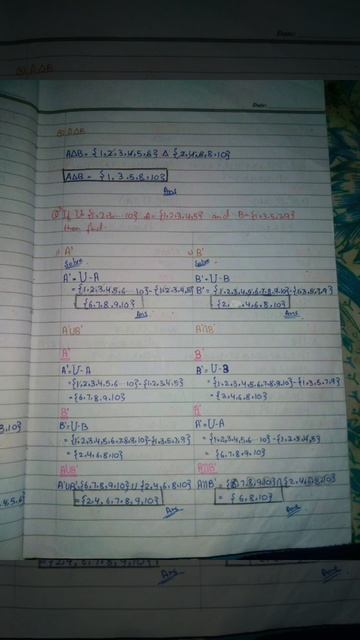 8) A∆B
AΔB = {1,2,3,4,5,6} Δ {2,4,6,8,10}
AΔB = {1,3,5,8,10}
Ans
Q If U {1,2,3....10} A = {1,2,3,4,5} and B = {1,3,5,7,9}
then find
A'
Solve
A' = U-A
= {1,2,3,4,5,6...10} - {1,2,3,4,5}
{6,7,8,9,10}
Ans
B'
Solve
B' = U-B
B' = {1,2,3,4,5,6,7,8,9,10} - {1,3,5,7,9}
{2,4,6,8,10}
Ans
A'UB'
A'
A' = U-A
= {1,2,3,4,5,6....10} - {1,2,3,4,5}
= {6,7,8,9,10}
B'
B' = U-B
= {1,2,3,4,5,6,7,8,9,10} - {1,3,5,7,9}
= {2,4,6,8,10}
A'UB'
A'UB' = {6,7,8,9,10} U {2,4,6,8,10}
= {2,4,6,7,8,9,10}
Ans
A'∩B'
B'
= U-B
= {1,2,3,4,5,6,7,8,9,10} - {1,3,5,7,9}
= {2,4,6,8,10}
A'
A' = U-A
= {1,2,3,4,5,6...10} - {1,2,3,4,5}
= {6,7,8,9,10}
A'∩B'
A'∩B' = {6,7,8,9,10} ∩ {2,4,6,8,10}
= {6,8,10}
Ans